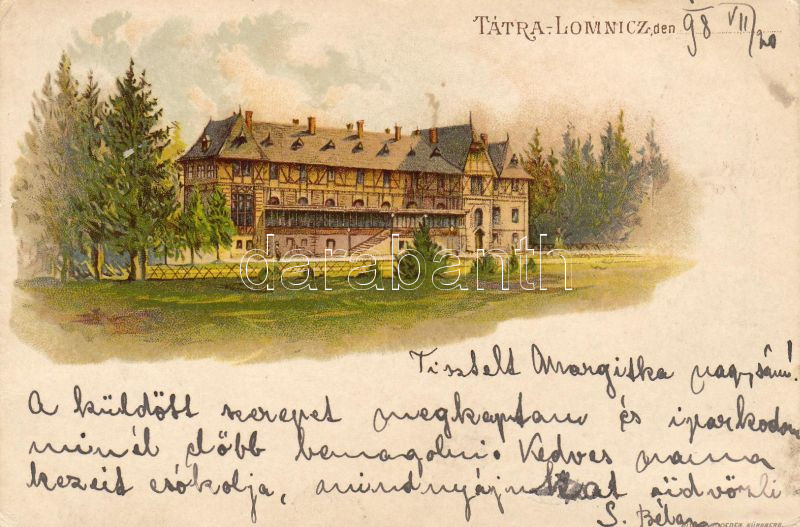 TÁTRA-LOMNICZ, den 98 VII/20
darabanth
Tisztelt Margitka nagysám!
A küldött szerepet megkaptam és iparkodom
minél előbb bemagolni. Kedves mama
kezeit csókolja, mindnyájukat üdvözli
S. Béla
NÜRNBERG.